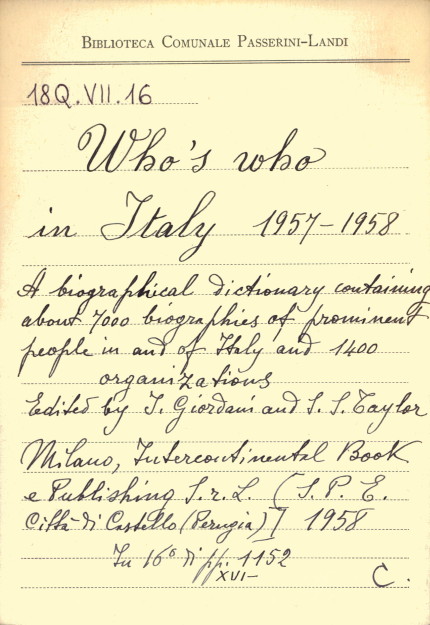 BIBLIOTECA COMUNALE PASSERINI-LANDI
18Q.VII.16
Who's who
in Italy 1957-1958
A biographical dictionary containing
about 7000 biographies of prominent
people in and of Italy and 1400
organizations
Edited by I. Giordani and S. S. Taylor
Milano, Intercontinental Book
e Publishing S.r.L. [S. P. E.
Città di Castello (Perugia)] 1958
In 16° di pp. 1152
XVI-
C.